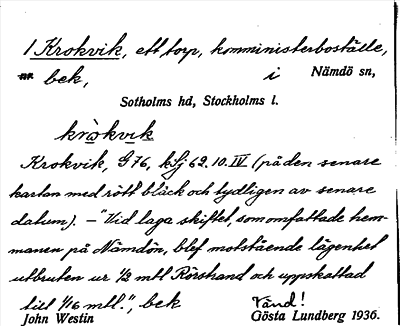 1 Krokvik, ett torp, komministerboställe,
nr. bek, i Nämdö sn,
Sotholms hd, Stockholms l.
kròkvik
Krokvik, G 76, kSj 62. 10. IV (på den senare
kartan med rött bläck och tydligen av senare
datum). – "Vid laga skiftet, som omfattade hem-
manen på Nämdön, blef motstående lägenhet
utbruten ur 1/2 mtl Rörstrand och uppskattad
till 1/16 mtl.", bek Vänd!
John Westin Gösta Lundberg 1936.